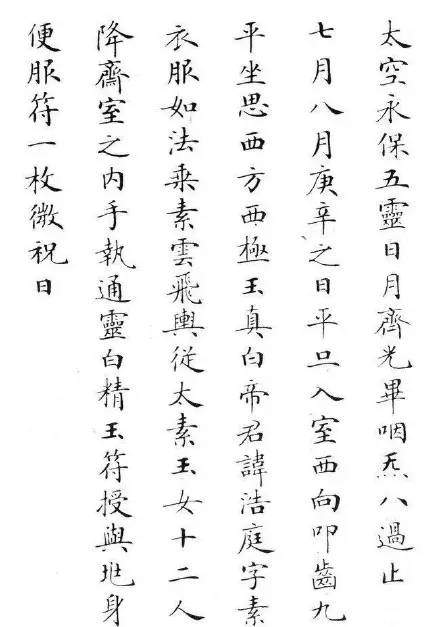 太空永保五靈日月齊光畢咽炁八過止
七月八月庚辛之日平旦入室西向叩齒九
平坐思西方西極玉真白帝君諱浩庭字素
衣服如法乘素雲飛輿從太素玉女十二人
降齋室之內手執通靈白精玉符授與兆身
便服符一枚微祝曰